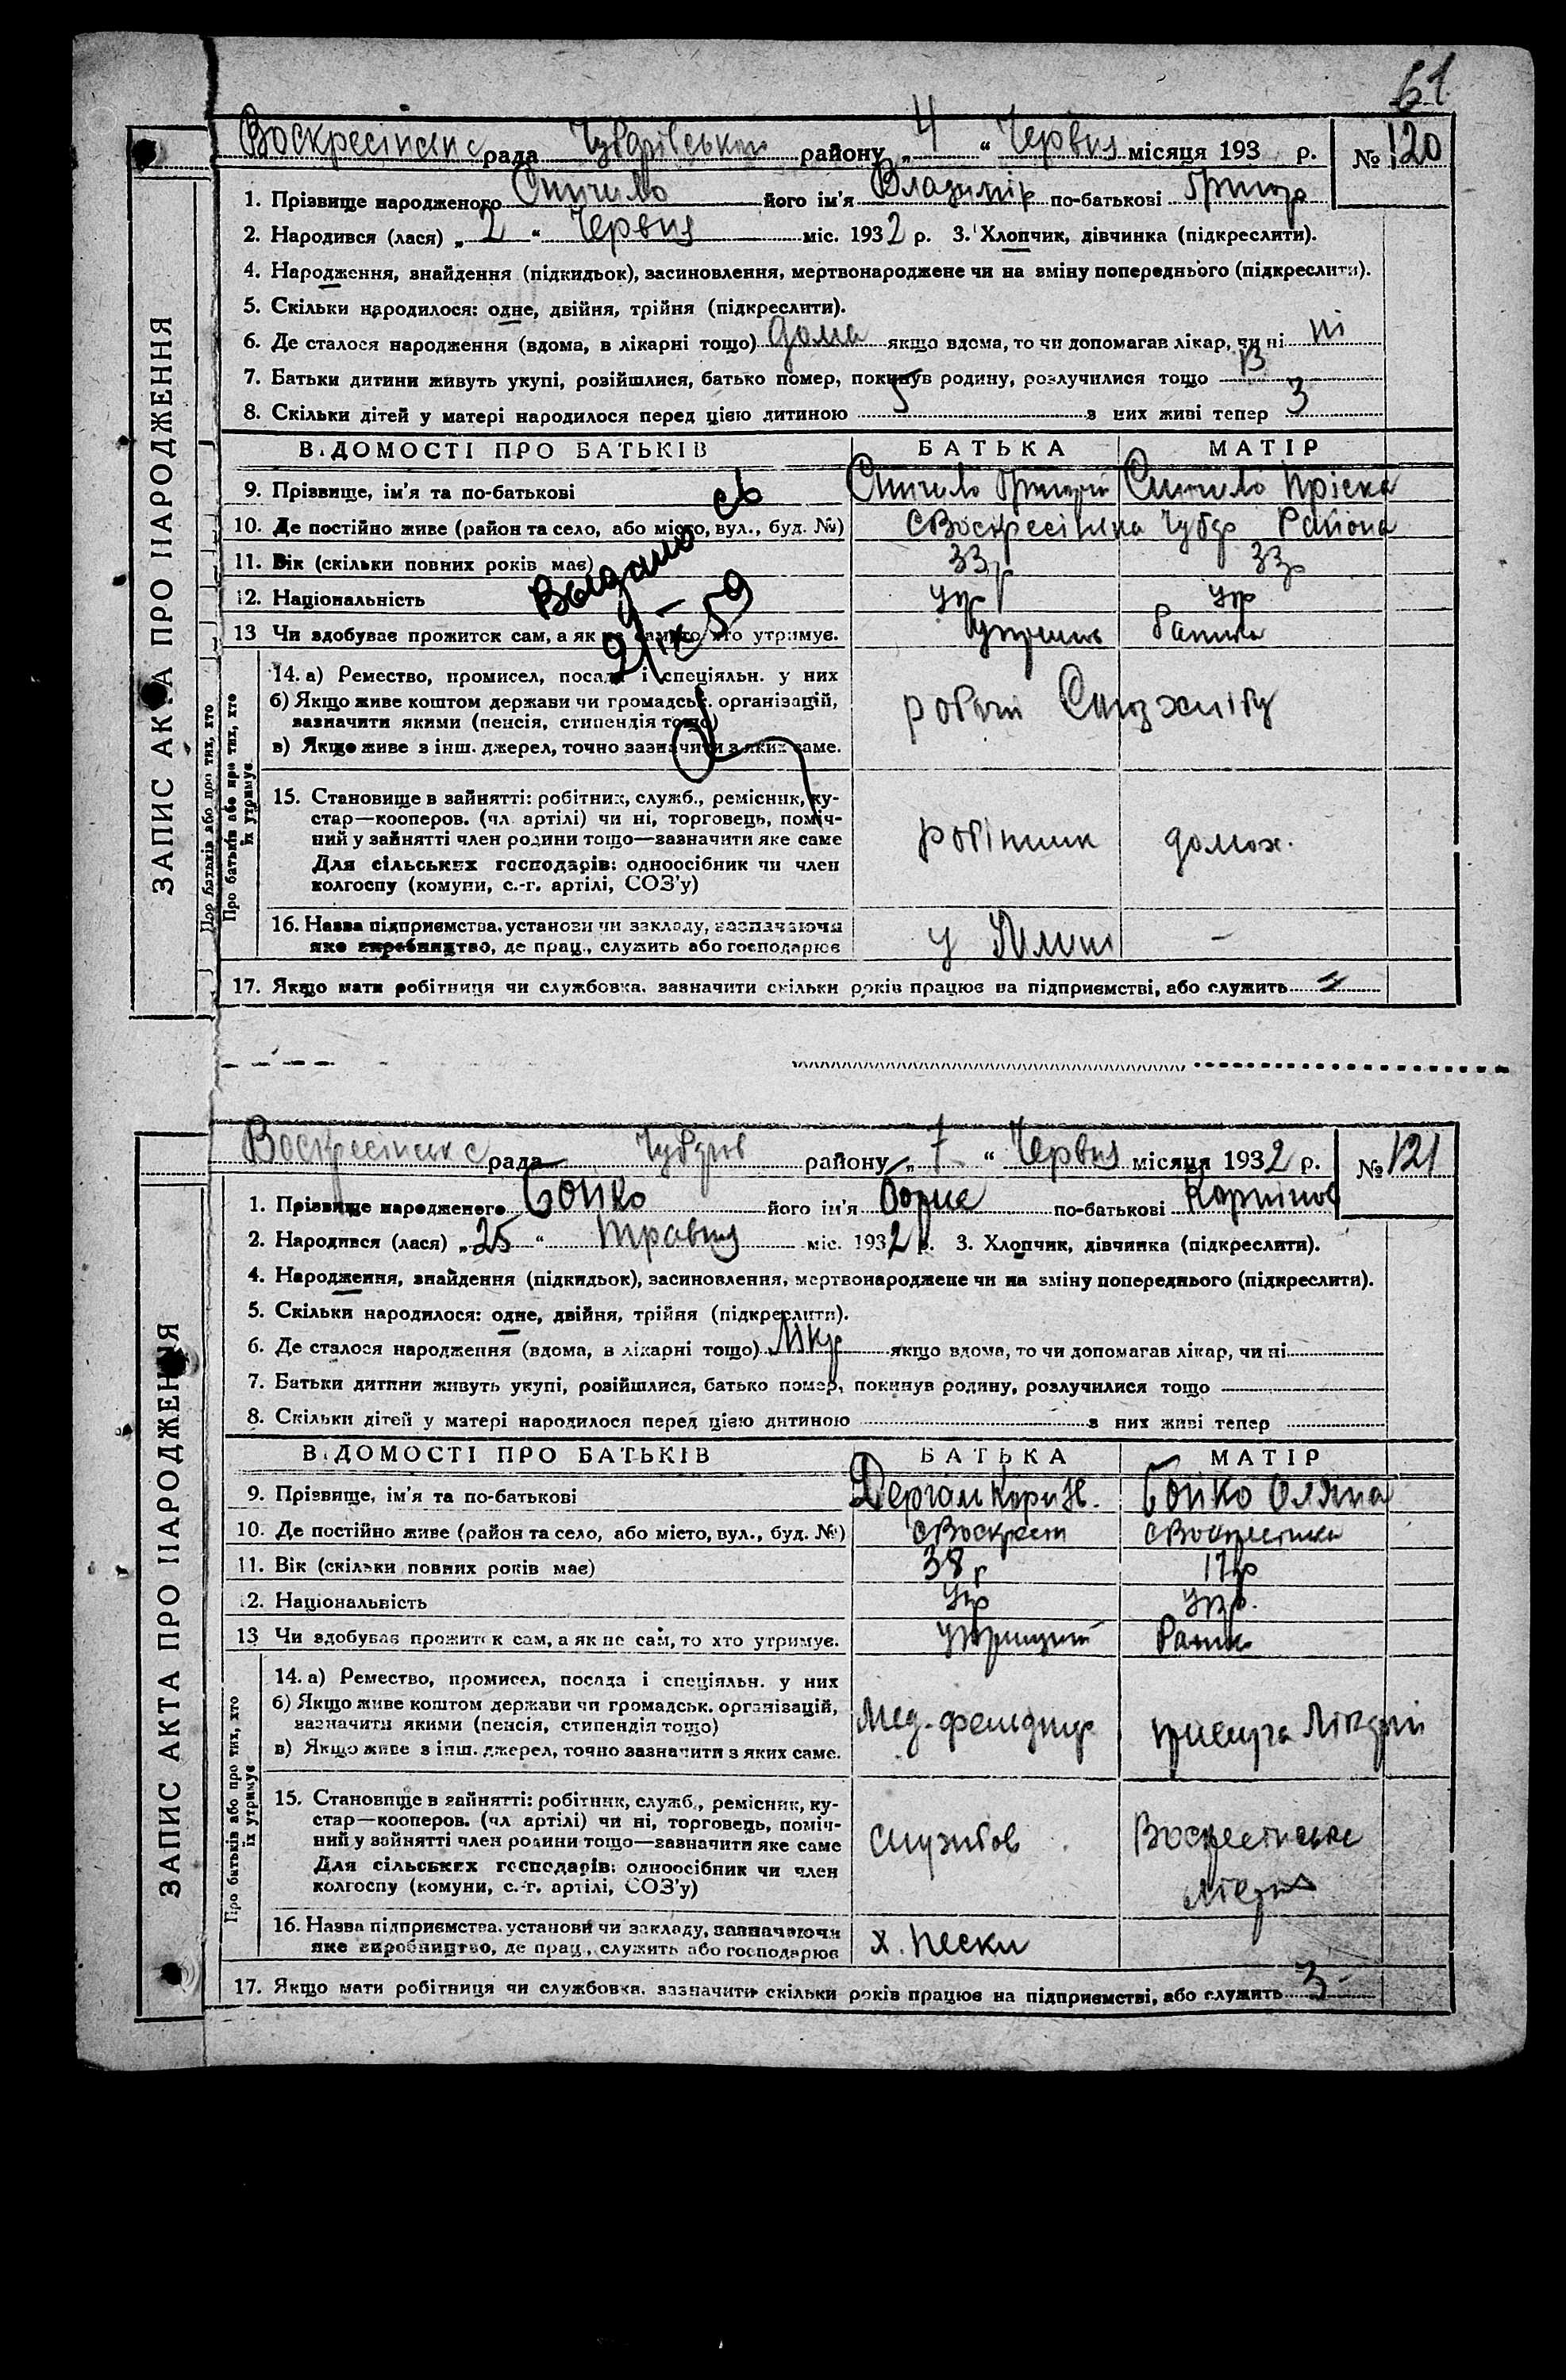 61
Воскресінська рада Чубарівського району „ 4 “ Червня місяця 193 р. № 120
1. Прізвище народженого Спичило його ім'я Владимір по-батькові Григор
2. Народився (лася) „ 2 “ Червня міс. 1932 р. 3. Хлопчик, дівчинка (підкреслити).
4. Народження, знайдення (підкидьок), засиновлення, мертвонароджене чи на зміну попереднього (підкреслити).
5. Скільки народилося: одне, двійня, трійня (підкреслити).
6. Де сталося народження (вдома, в лікарні тощо) дома якщо вдома, то чи допомагав лікар, чи ні ні
7. Батьки дитини живуть укупі, розійшлися, батько помер, покинув родину, розлучилися тощо
8. Скільки дітей у матері народилося перед цією дитиною 5 з них живі тепер 3
ВІДОМОСТІ ПРО БАТЬКІВ БАТЬКА МАТІР
9. Прізвище, ім'я та по-батькові Спичило Григорій Спичило Пріска
10. Де постійно живе (район та село, або місто, вул., буд. №) с Воскресінка Чубар Района
11. Вік (скільки повних років має) 33 р 33 р
12. Національність Укр Укр
13 Чи здобуває прожиток сам, а як не сам, то хто утримує.
Выдано св
9/IX 59
14. а) Ремество, промисел, посада і спеціяльн. у них
б) Якщо живе коштом держави чи громадськ. організацій,
зазначити якими (пенсія, стипендія тощо)
в) Якщо живе з інш. джерел, точно зазначити з яких саме.
робоч Союзхлібу
15. Становище в зайнятті: робітник, служб., ремісник, ку-
стар—кооперов. (чл артілі) чи ні, торговець, поміч-
ний у зайнятті член родини тощо—зазначити яке саме
Для сільських господарів: одноосібник чи член
колгоспу (комуни, с.-г. артілі, СОЗ'у)
робітник домох.
16. Назва підприємства, установи чи закладу, зазначаючи
яке виробництво, де прац., служить або господарює
у –
17. Якщо мати робітниця чи службовка, зазначити скільки років працює на підприємстві, або служить =
ЗАПИС АКТА ПРО НАРОДЖЕННЯ
Про батьків або про тих, хто
їх утримує
Воскресінська рада Чубарів району „ 7 “ Червня місяця 1932 р. № 121
1. Прізвище народженого Бойко його ім'я Борис по-батькові Карпінов
2. Народився (лася) „ 25 “ травня міс. 1932 р. 3. Хлопчик, дівчинка (підкреслити).
4. Народження, знайдення (підкидьок), засиновлення, мертвонароджене чи на зміну попереднього (підкреслити).
5. Скільки народилося: одне, двійня, трійня (підкреслити).
6. Де сталося народження (вдома, в лікарні тощо) Лікар якщо вдома, то чи допомагав лікар, чи ні
7. Батьки дитини живуть укупі, розійшлися, батько помер, покинув родину, розлучилися тощо
8. Скільки дітей у матері народилося перед цією дитиною з них живі тепер
ВІДОМОСТІ ПРО БАТЬКІВ БАТЬКА МАТІР
9. Прізвище, ім'я та по-батькові Бойко Оляна
10. Де постійно живе (район та село, або місто, вул., буд. №) с Воскресін с Воскресінка
11. Вік (скільки повних років має) 38 р 17 р
12. Національність Укр Укр.
13 Чи здобуває прожиток сам, а як не сам, то хто утримує.
14. а) Ремество, промисел, посада і спеціяльн. у них
б) Якщо живе коштом держави чи громадськ. організацій,
зазначити якими (пенсія, стипендія тощо)
в) Якщо живе з інш. джерел, точно зазначити з яких саме.
Мед-фельдшер прислуга Лікарні
15. Становище в зайнятті: робітник, служб., ремісник, ку-
стар—кооперов. (чл артілі) чи ні, торговець, поміч-
ний у зайнятті член родини тощо—зазначити яке саме
Для сільських господарів: одноосібник чи член
колгоспу (комуни, с.-г. артілі, СОЗ'у)
службов Воскресінська
лікарня
16. Назва підприємства, установи чи закладу, зазначаючи
яке виробництво, де прац., служить або господарює
х. Пески
17. Якщо мати робітниця чи службовка, зазначити скільки років працює на підприємстві, або служить 3
ЗАПИС АКТА ПРО НАРОДЖЕННЯ
Про батьків або про тих, хто
їх утримує